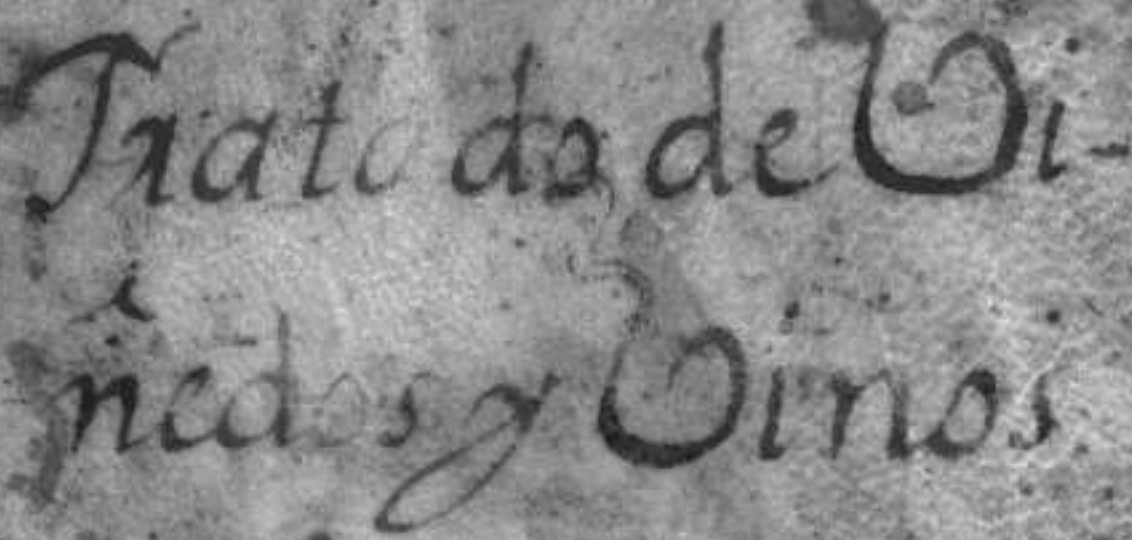 Tratado de Vi-
ñedos y Vinos